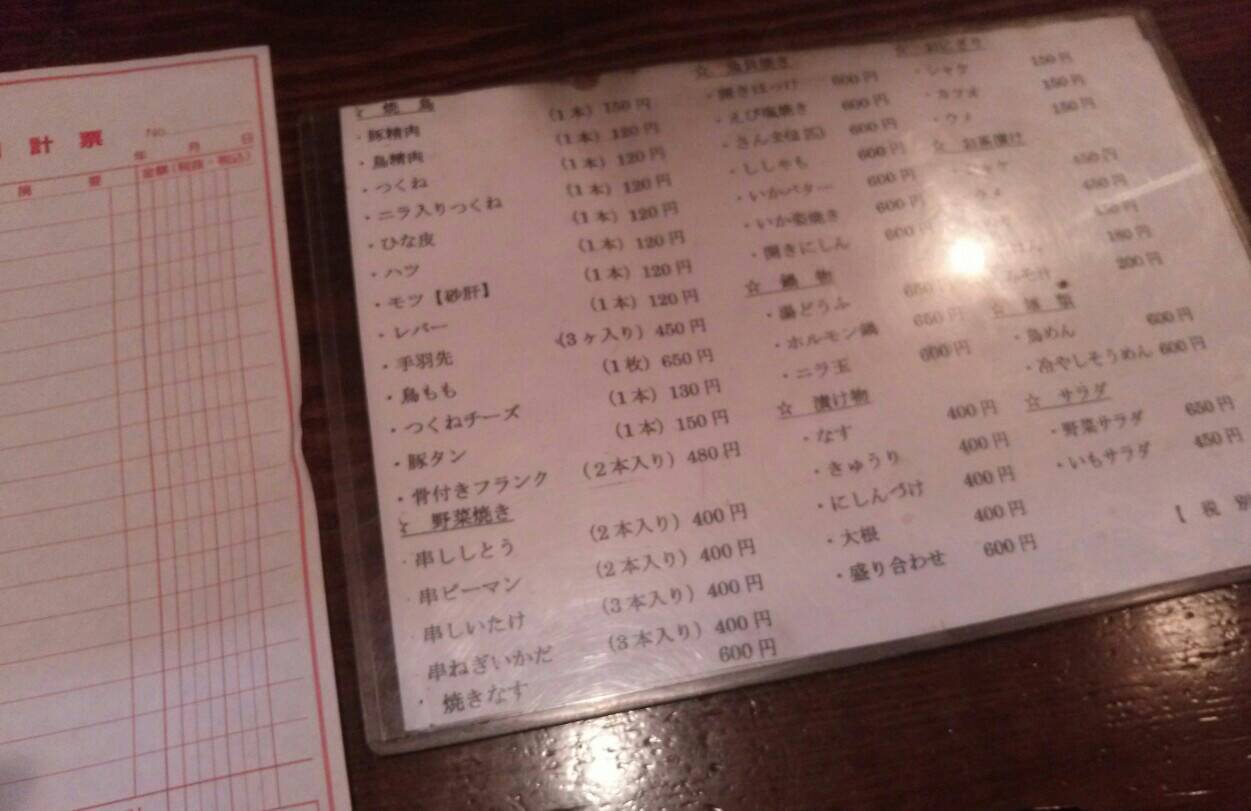 計 票
No.
年 月 日
摘 要
金額(税抜・税込)
☆ 焼 鳥
・豚精肉 (1本) 150円
・鳥精肉 (1本) 120円
・つくね (1本) 120円
・ニラ入りつくね (1本) 120円
・ひな皮 (1本) 120円
・ハツ (1本) 120円
・モツ【砂肝】 (1本) 120円
・レバー (1本) 120円
・手羽先 (3ヶ入り) 450円
・鳥もも (1枚) 650円
・つくねチーズ (1本) 130円
・豚タン (1本) 150円
・骨付きフランク (2本入り) 480円
☆ 野菜焼き
・串ししとう (2本入り) 400円
・串ピーマン (2本入り) 400円
・串しいたけ (3本入り) 400円
・串ねぎいかだ (3本入り) 400円
・焼きなす 600円
☆ 魚貝焼き
・開きほっけ 600円
・えび塩焼き 600円
・さんま 600円
・ししゃも 600円
・いかバター 600円
・いか姿焼き 600円
・開きにしん 600円
☆ 鍋 物
・湯どうふ 650円
・ホルモン鍋 650円
・ニラ玉 600円
☆ 漬け物
・なす 400円
・きゅうり 400円
・にしんづけ 400円
・大根 400円
・盛り合わせ 600円
☆ おにぎり
・シャケ 150円
・カツオ 150円
・ウメ 150円
☆ お茶漬け
450円
450円
450円
200円
☆ 麺 類
・鳥めん 600円
・冷やしそうめん 600円
☆ サラダ
・野菜サラダ 650円
・いもサラダ 450円
【 税 別